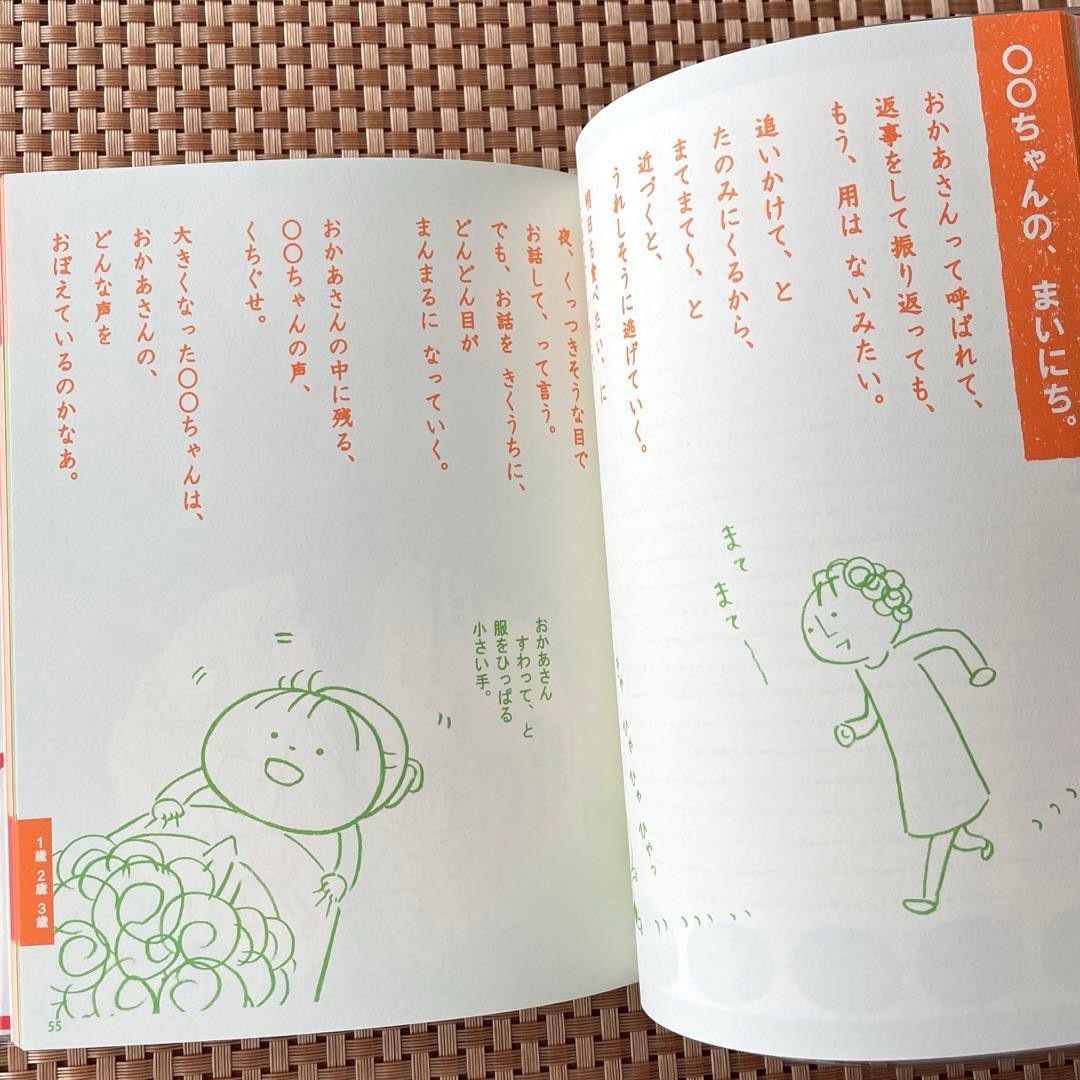 〇〇ちゃんの、まいにち。
おかあさんって呼ばれて、
返事をして振り返っても、
もう、用は ないみたい。
追いかけて、と
たのみにくるから、
まてまて〜、と
近づくと、
うれしそうに逃げていく。
まて
まて〜
ひゃ
ひゃ
ひゃっ
夜、くっつきそうな目で
お話して、って言う。
でも、お話を きくうちに、
どんどん目が
まんまるに なっていく。
おかあさんの中に残る、
〇〇ちゃんの声、
くちぐせ。
大きくなった〇〇ちゃんは、
おかあさんの、
どんな声を
おぼえているのかなあ。
おかあさん
すわって、と
服をひっぱる
小さい手。
1歳 2歳 3歳
55